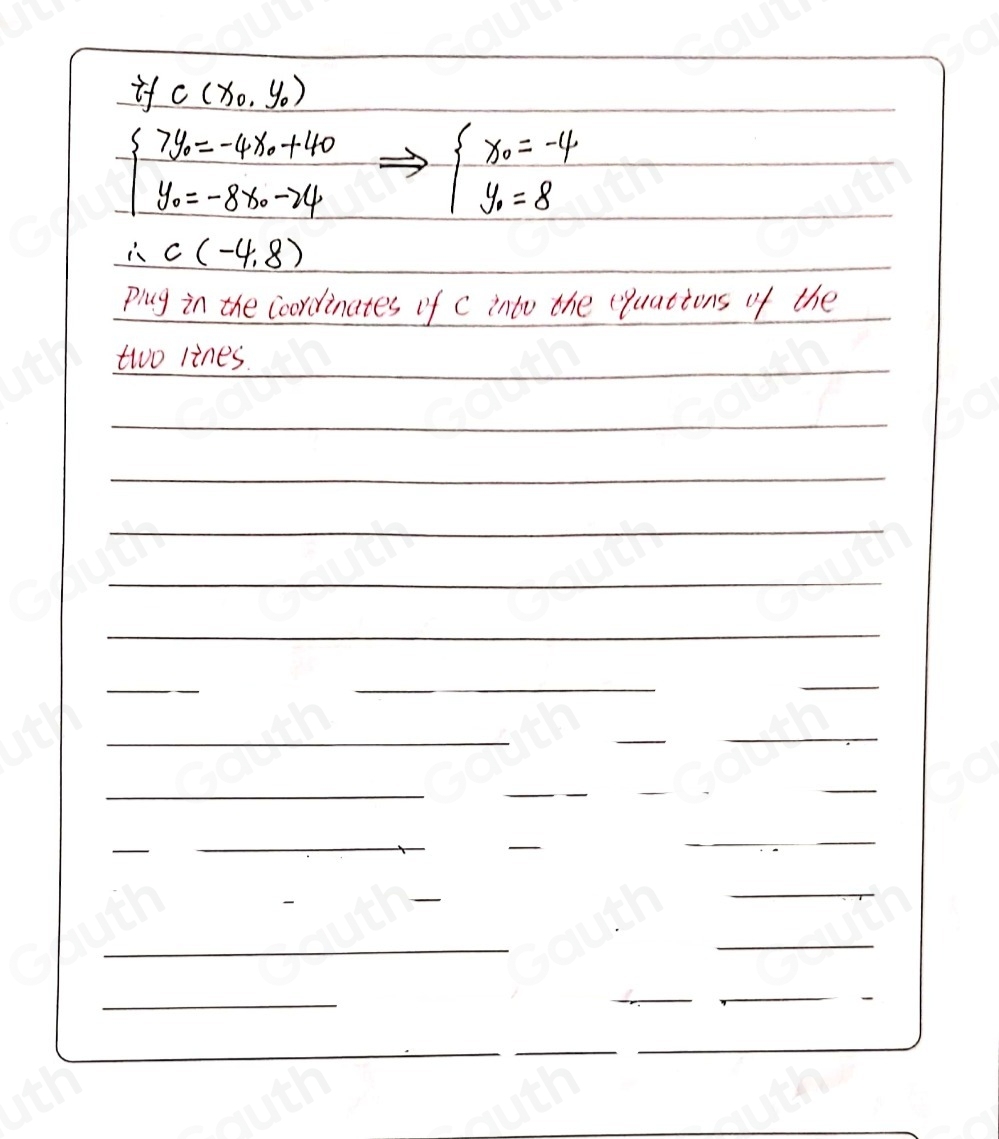 if C (x₀, y₀)
{ 7y₀ = -4x₀ + 40
y₀ = -8x₀ - 24 ⇒ { x₀ = -4
y₀ = 8
∴ C (-4, 8)
Plug in the coordinates of C into the equations of the
two lines.
Gauth